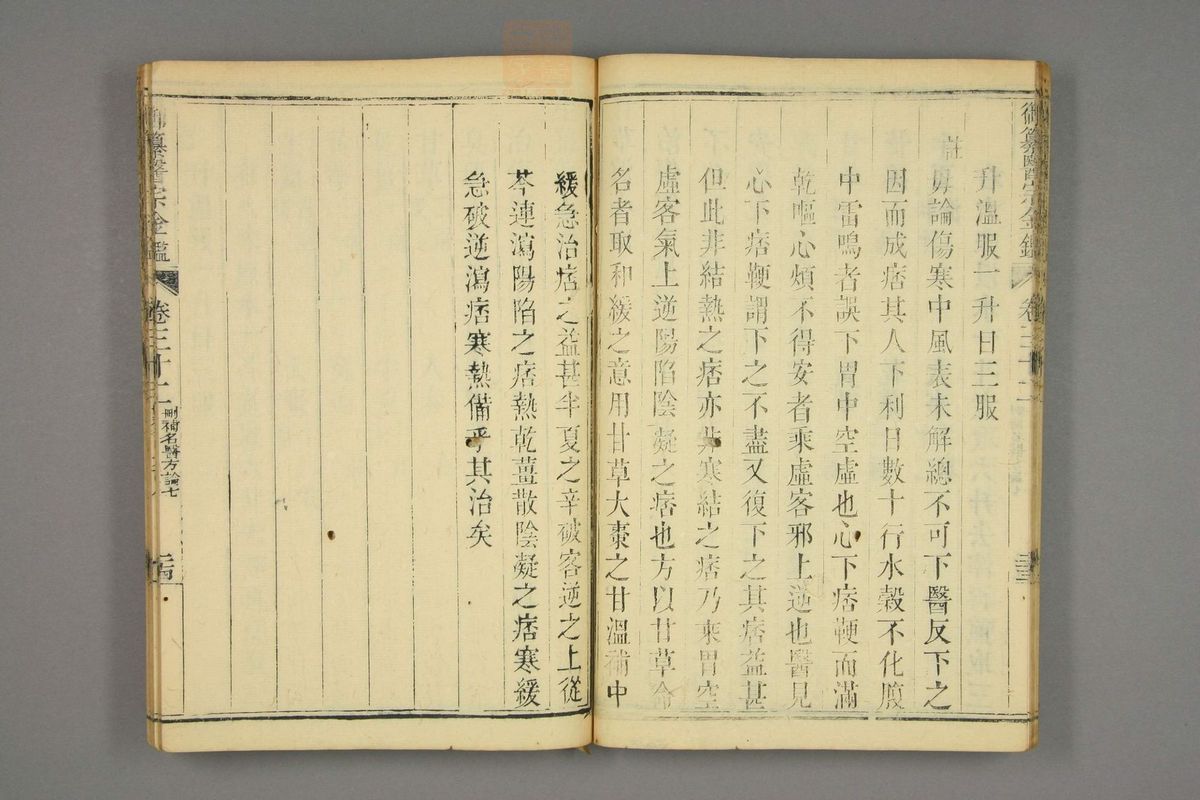 御纂醫宗金鑑 卷三十二 三三
升溫服一升日三服
註
毋論傷寒中風表未解總不可下醫反下之
因而成痞其人下利日數十行水穀不化腹
中雷鳴者誤下胃中空虛也心下痞鞕而滿
乾嘔心煩不得安者乘虛客邪上逆也醫見
心下痞鞕謂下之不盡又復下之其痞益甚
但此非結熱之痞亦非寒結之痞乃乘胃空
虛客氣上逆陽陷陰凝之痞也方以甘草命
名者取和緩之意用甘草大棗之甘溫補中
緩急治痞之益甚半夏之辛破客逆之上從
芩連瀉陽陷之痞熱乾薑散陰凝之痞寒緩
急破逆瀉痞寒熱備乎其治矣
御纂醫宗金鑑 卷三十二 刪補名醫方論七 二四